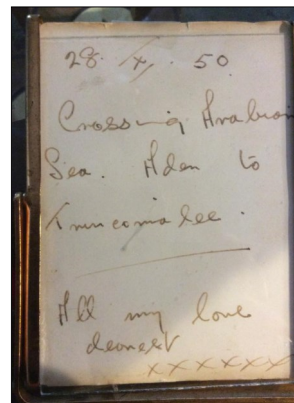 28. X. 50
Crossing Arabian
Sea. Aden to
Trincomalee.
All my love
dearest
xxxxxx